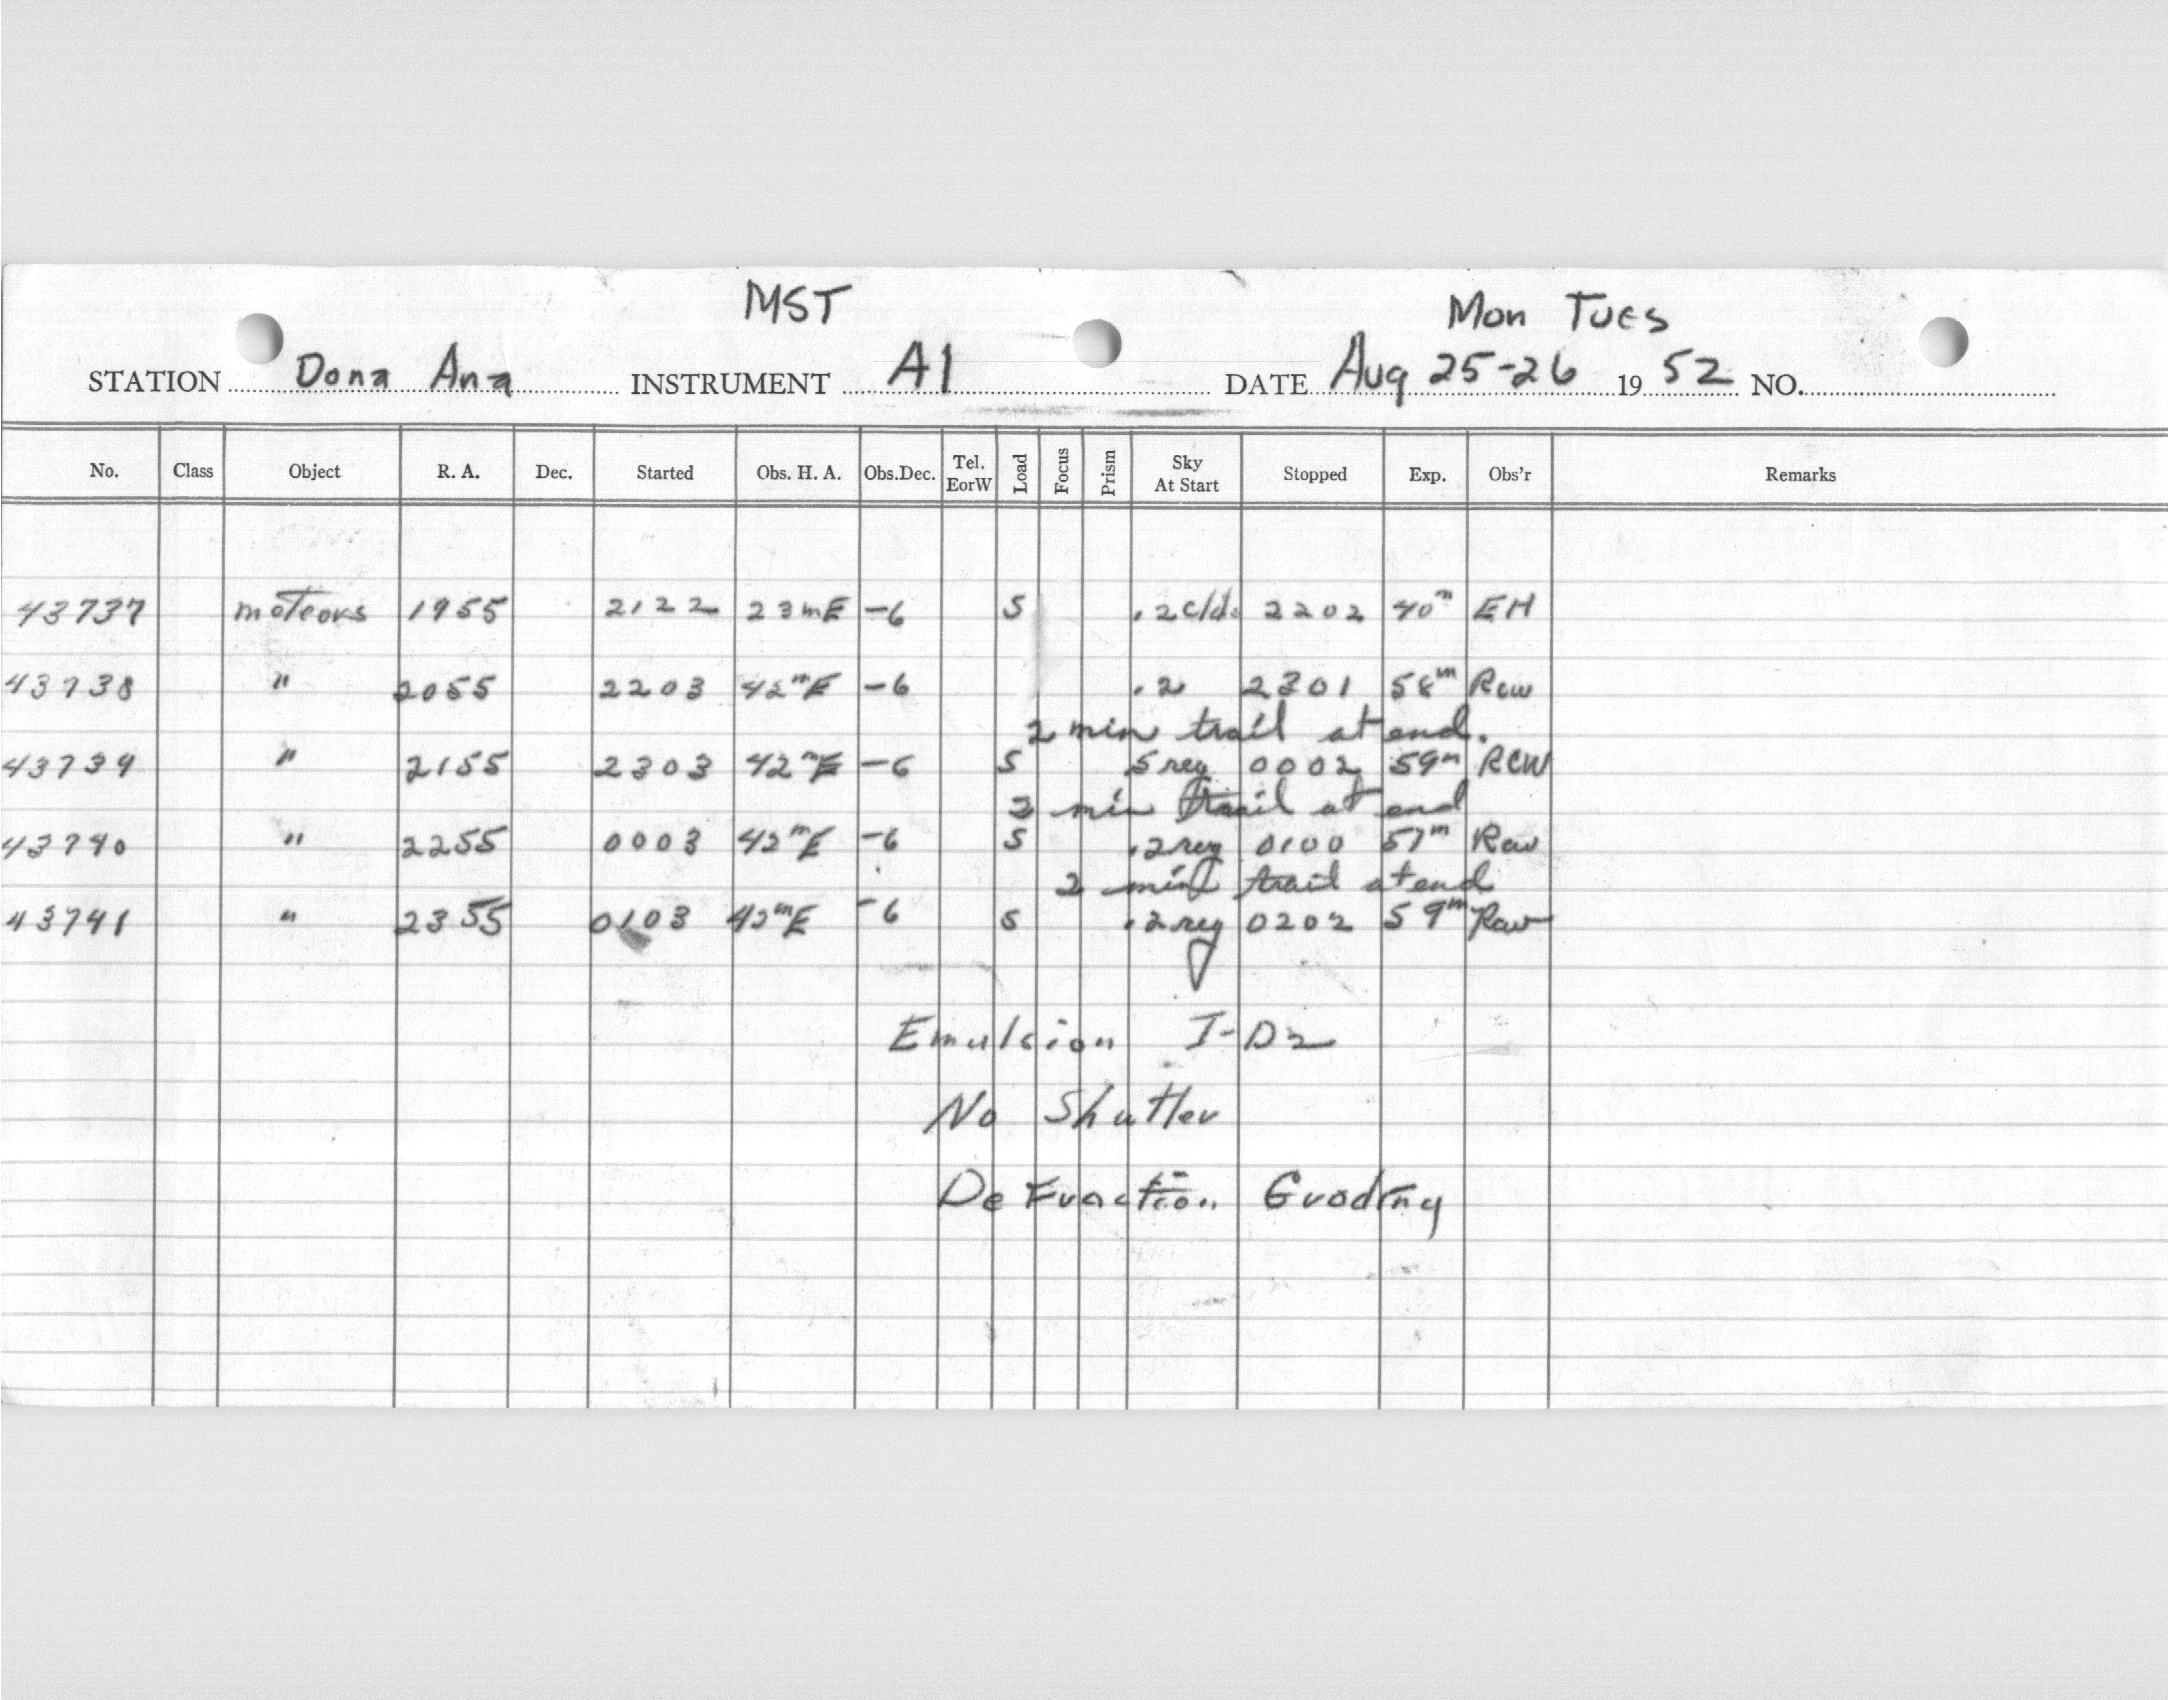 MST
Mon Tues
STATION Dona Ana INSTRUMENT A1 DATE Aug 25-26 19 52 NO.
No. Class Object R. A. Dec. Started Obs. H. A. Obs.Dec. Tel. EorW Load Focus Prism Sky At Start Stopped Exp. Obs'r Remarks
43737 meteors 1955 2122 23mE -6 S .2 clds 2202 40m EH
43738 " 2055 2203 42mE -6 .2 2301 58m RCW
2 min trail at end.
43739 " 2155 2303 42mE -6 S 5 reg 0002 59m RCW
2 min trail at end
43740 " 2255 0003 42mE -6 S .2 reg 0100 57m RCW
2 min trail at end
43741 " 2355 0103 42mE -6 S .2 reg 0202 59m RCW
Emulsion I-D2
No Shutter
Defraction Grading